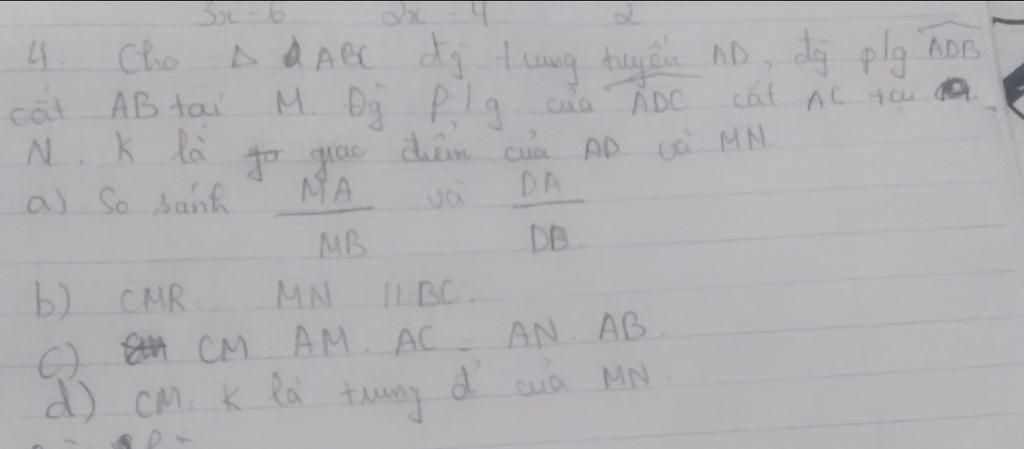 3x - 6 2x - 4 2
4. Cho Δ ABC đg trung tuyến AD, đg p/g ADB
cắt AB tại M. Đg p/g của ADC cắt AC tại
N. K là giao điểm của AD và MN
a) So sánh MA/MB và DA/DB
b) CMR. MN // BC.
c) CM. AM. AC = AN. AB.
d) CM. K là trung đ' của MN.